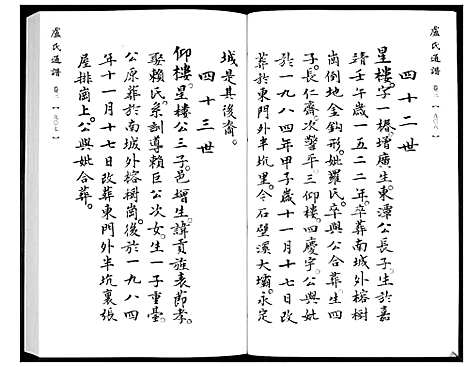 盧氏通譜
四十二世
星樓。字一椿。增廣生。東潭公長子。生於嘉
靖壬午歲一五二二年。卒葬南城外榕樹
崗倒地金鈎形。妣羅氏。卒與公合葬。生四
子。長仁齋。次肇平。三仰樓。四慶宇。公與妣
於一九八四年甲子歲十一月十七日改
葬於東門外半坑里。今石壁溪大壩。永定
城是其後裔。
四十三世
仰樓。星樓公三子。邑增生。諱貢旌表節孝。
娶賴氏。系訓導賴巨公次女。生一子重臺。
公原葬於南城外榕樹崗。後於一九八四
年十一月十七日改葬東門外半坑裏張
屋排崗上。公與妣合葬。
盧氏通譜